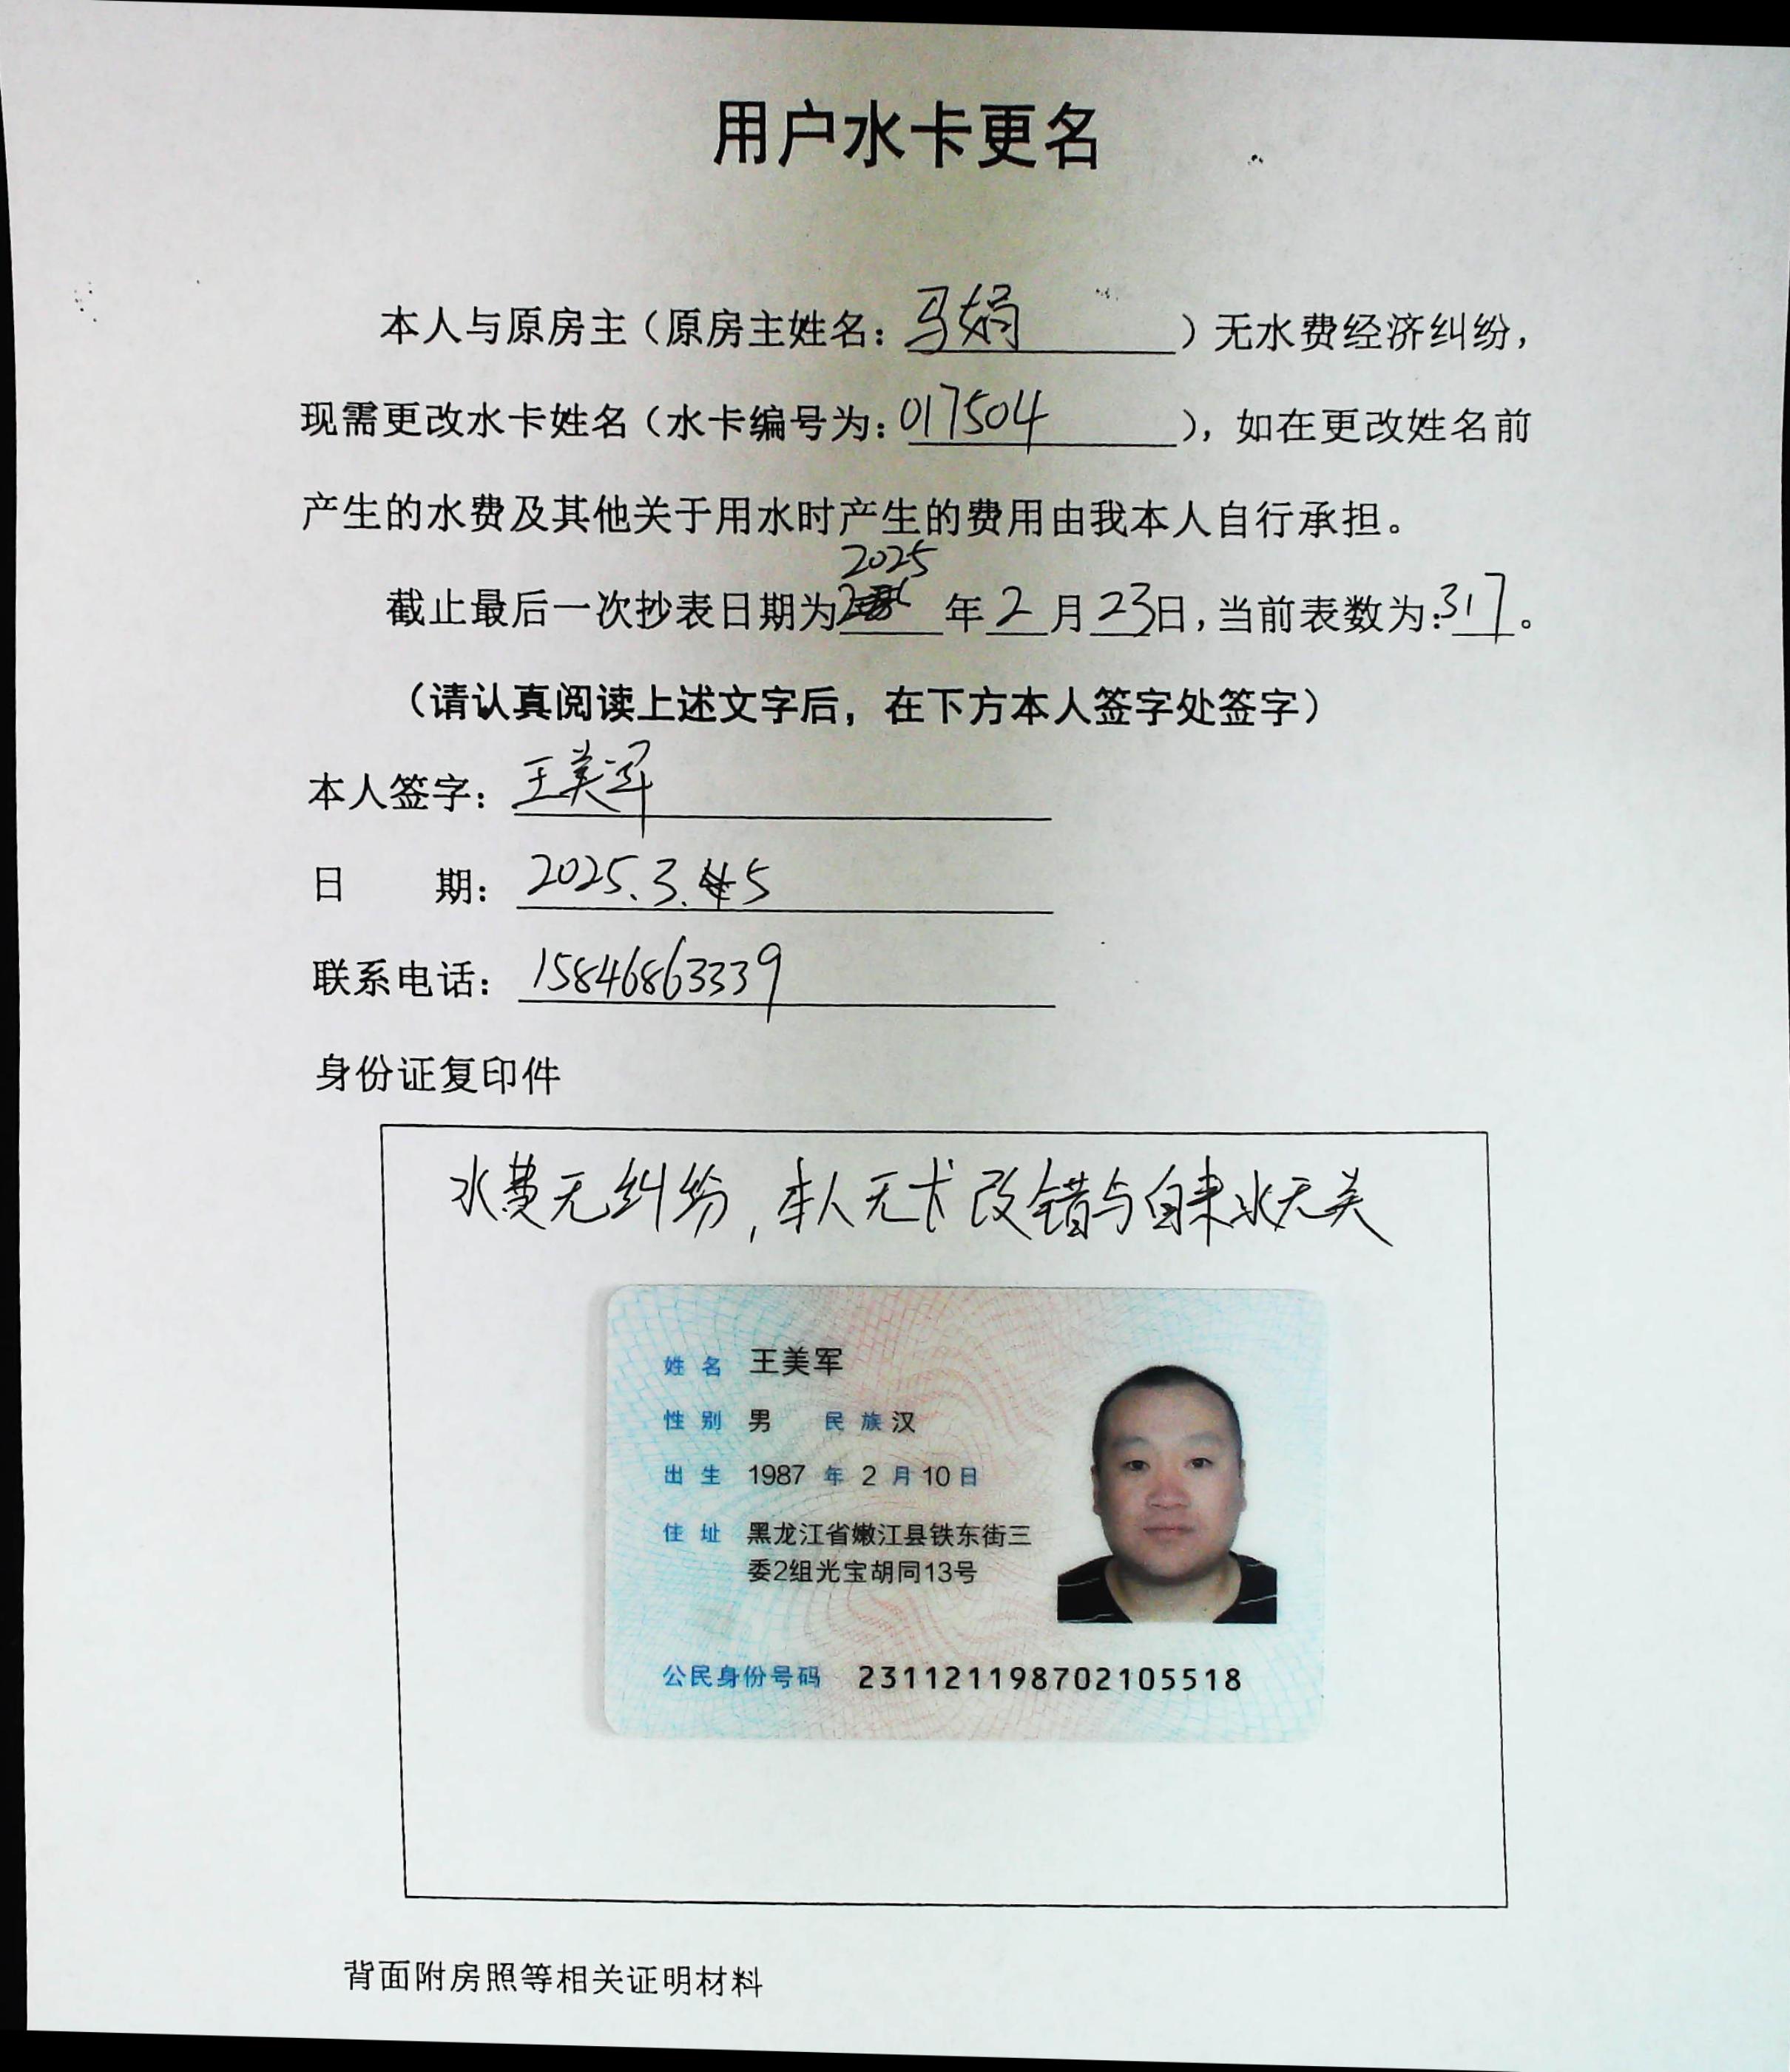 用户水卡更名
本人与原房主（原房主姓名：马娟）无水费经济纠纷，
现需更改水卡姓名（水卡编号为：017504），如在更改姓名前
产生的水费及其他关于用水时产生的费用由我本人自行承担。
2025
截止最后一次抄表日期为 年2月23日，当前表数为：317。
（请认真阅读上述文字后，在下方本人签字处签字）
本人签字：王美军
日 期：2025.3.5
联系电话：15846863339
身份证复印件
水费无纠纷，本人无卡改错与自来水无关
姓名 王美军
性别 男 民族 汉
出生 1987 年 2 月 10 日
住址 黑龙江省嫩江县铁东街三
委2组光宝胡同13号
公民身份号码 231121198702105518
背面附房照等相关证明材料